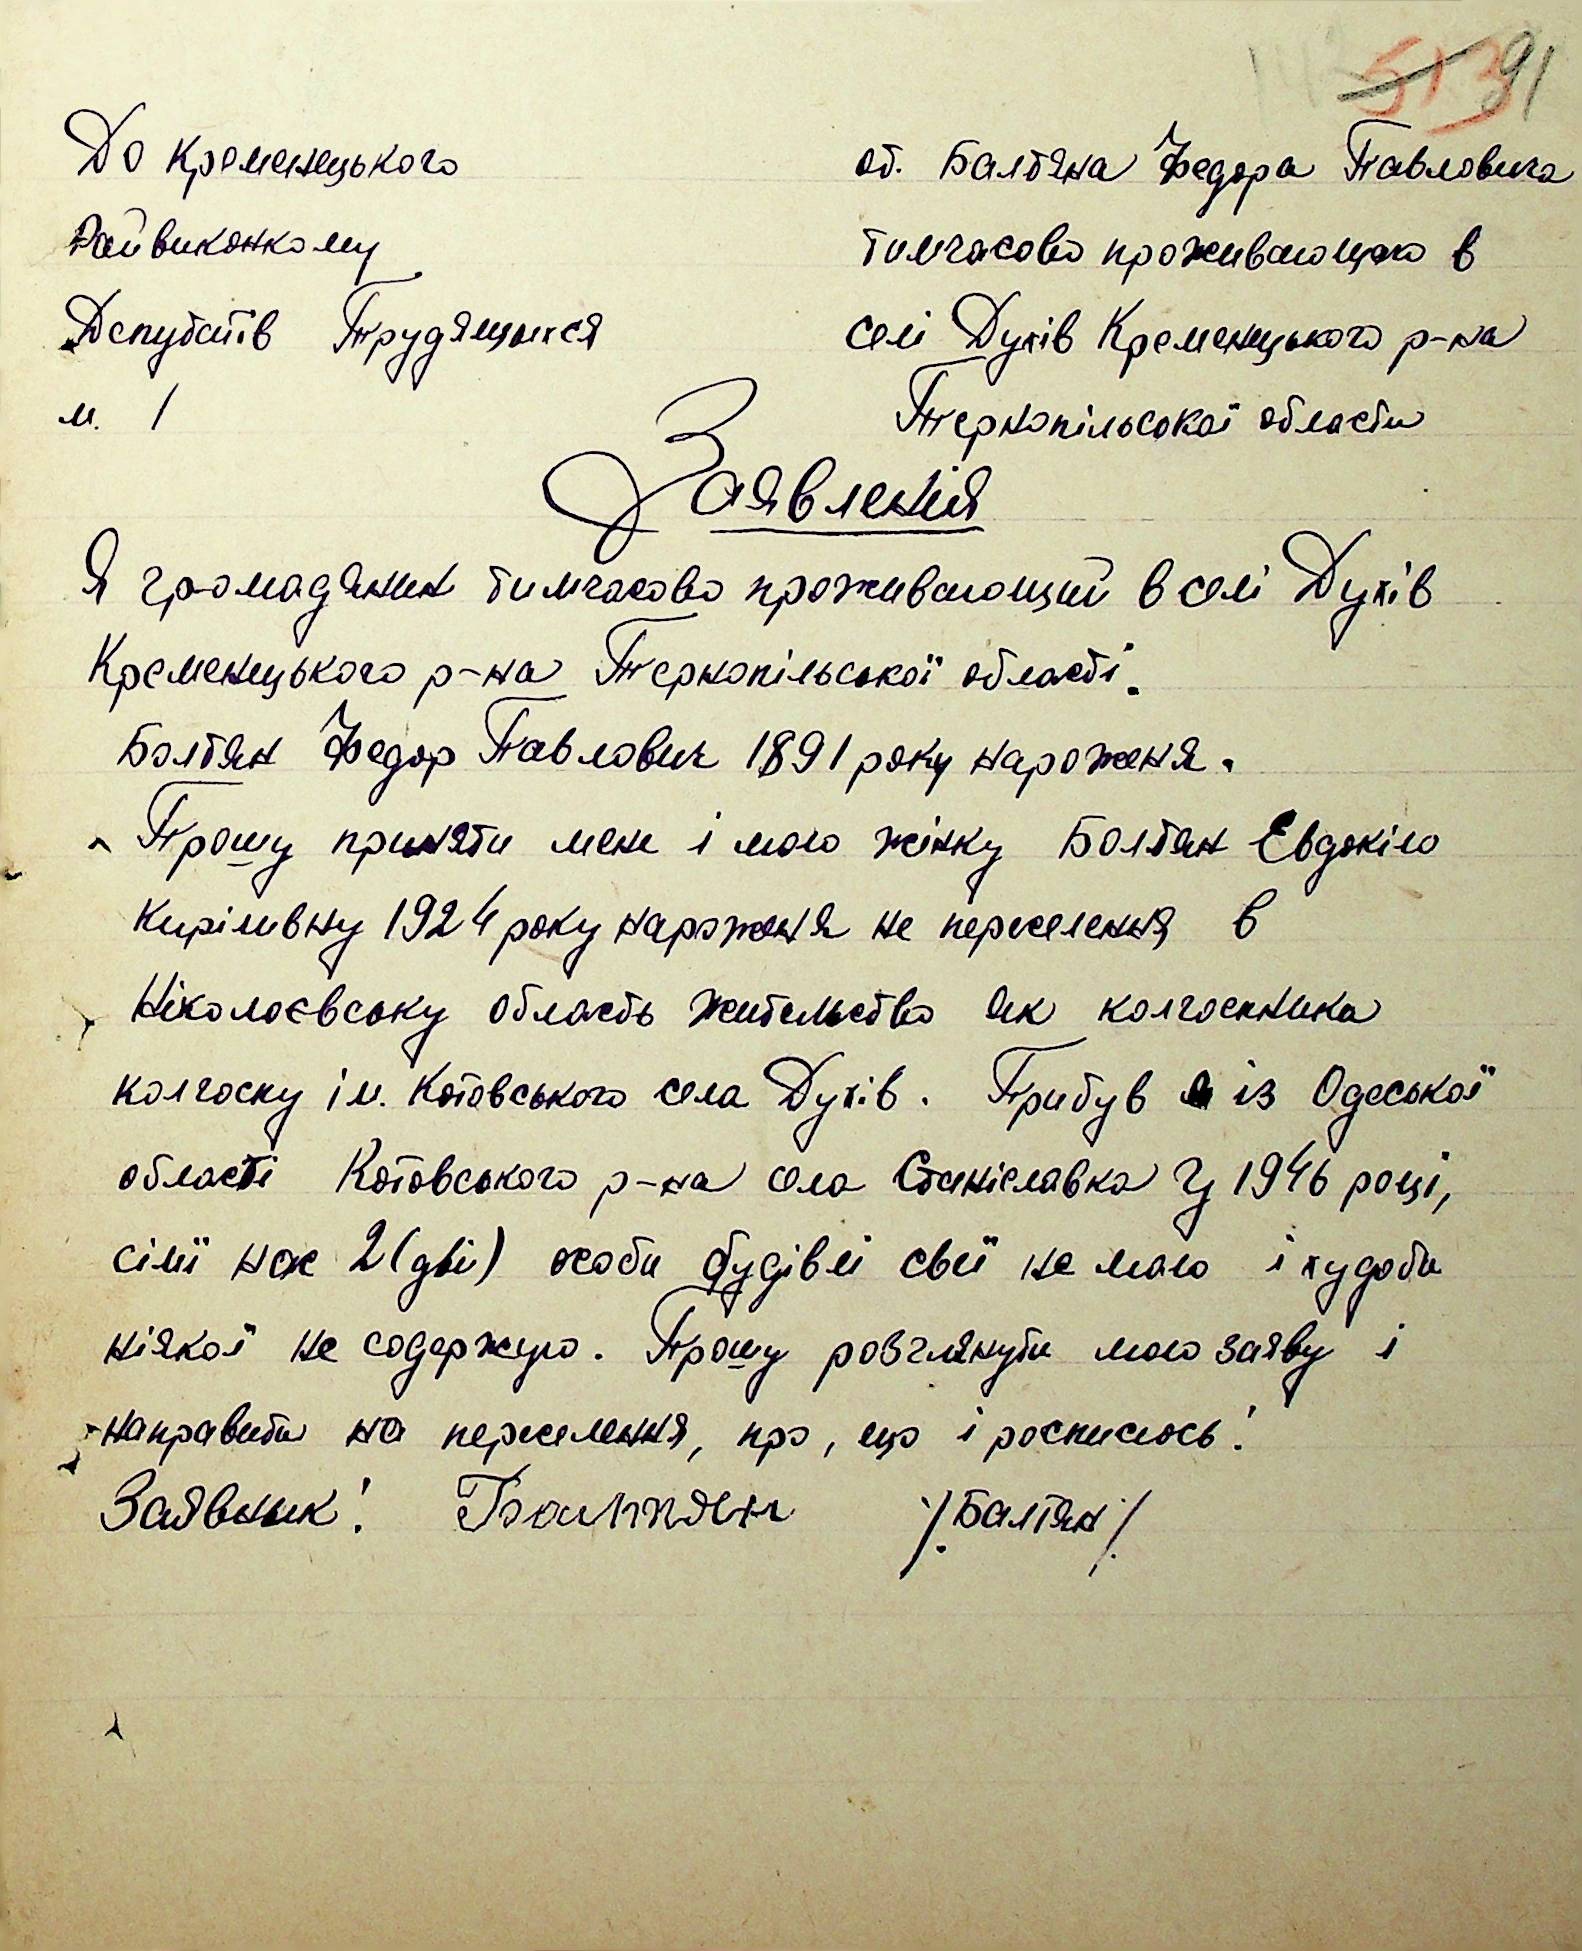 513 91
До Кременецького
Райвиконкому
Депутатів Трудящихся
м. 1
от. Балтяна Федора Павловича
тимчасово проживающого в
селі Духів Кременецького р-на
Тернопільсокої области
Заявленія
Я громадянин тимчасово проживающий в селі Духів
Кременецького р-на Тернопільської області.
Болтян Федор Павлович 1891 року нароженя.
Прошу приняти мене і мою жінку Болтян Евдокію
Кирілівну 1924 року нароженя не переселення в
Ніколоєвську область жительство як колгоспника
колгоспу ім. Котовського села Духів. Прибув я із Одеської
області Котовського р-на села Станіславка у 1946 році,
сімї нас 2 (дві) особи будівлі свєї не маю і худоби
ніякої не содержую. Прошу розглянути мою заяву і
направити на переселення, про, що і росписюсь!
Заявник! Балтян /. Балтян ./